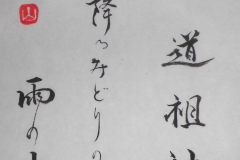 道祖神
降るみどりの
雨の